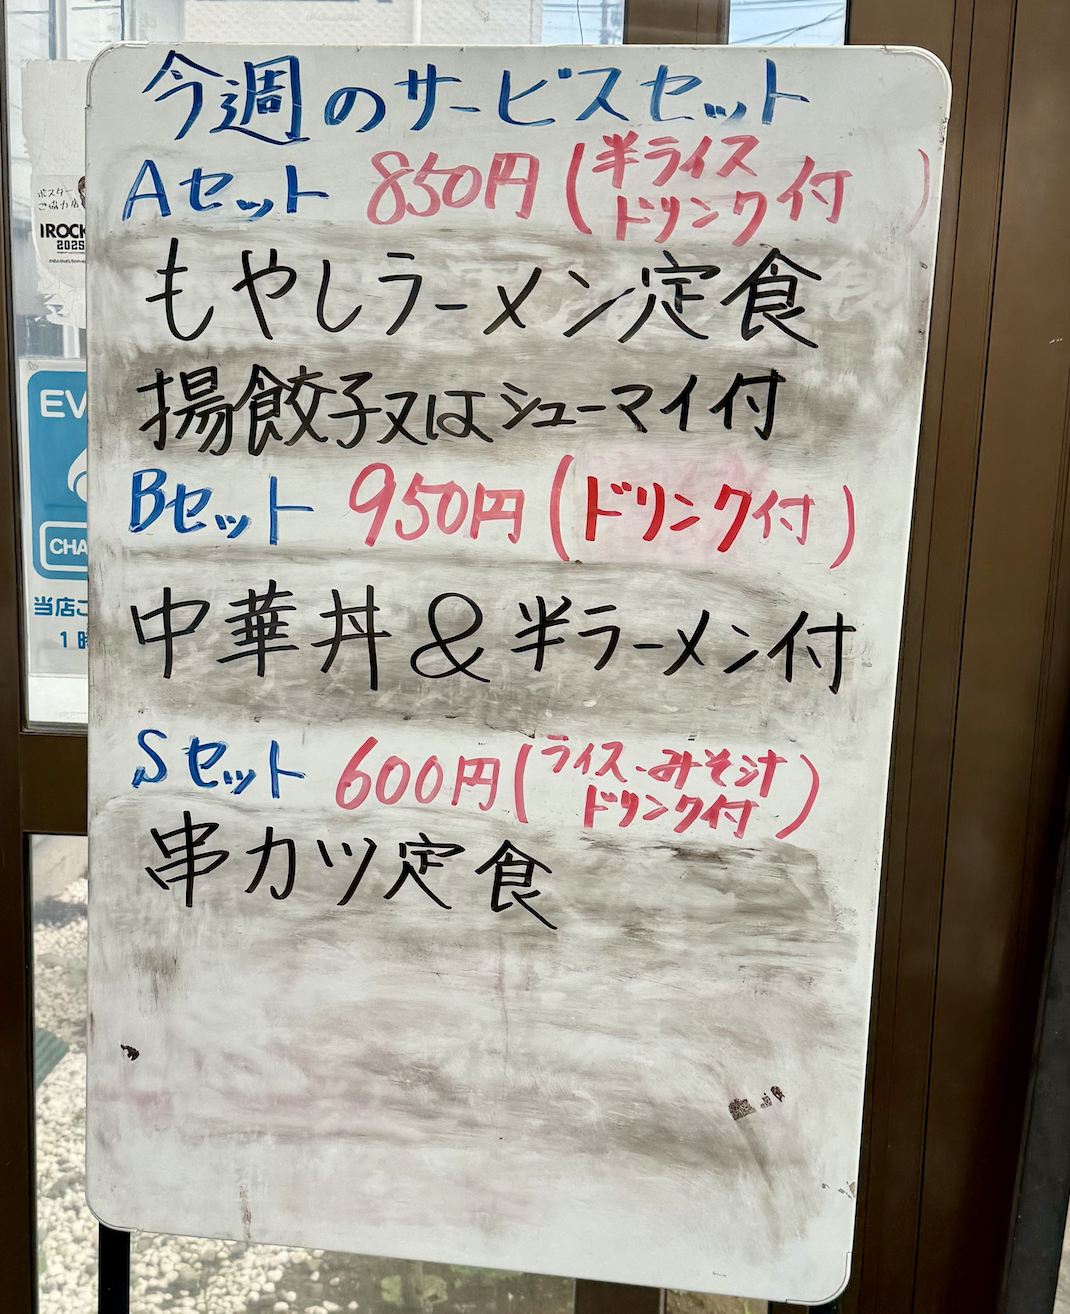 今週のサービスセット
Aセット 850円(半ライス
ドリンク付)
もやしラーメン定食
揚餃子又はシューマイ付
Bセット 950円(ドリンク付)
中華丼&半ラーメン付
Sセット 600円(ライス、みそ汁
ドリンク付)
串カツ定食
ポスター
ご協力店
IROCK
2025
EV
CHA
当店ご
1時